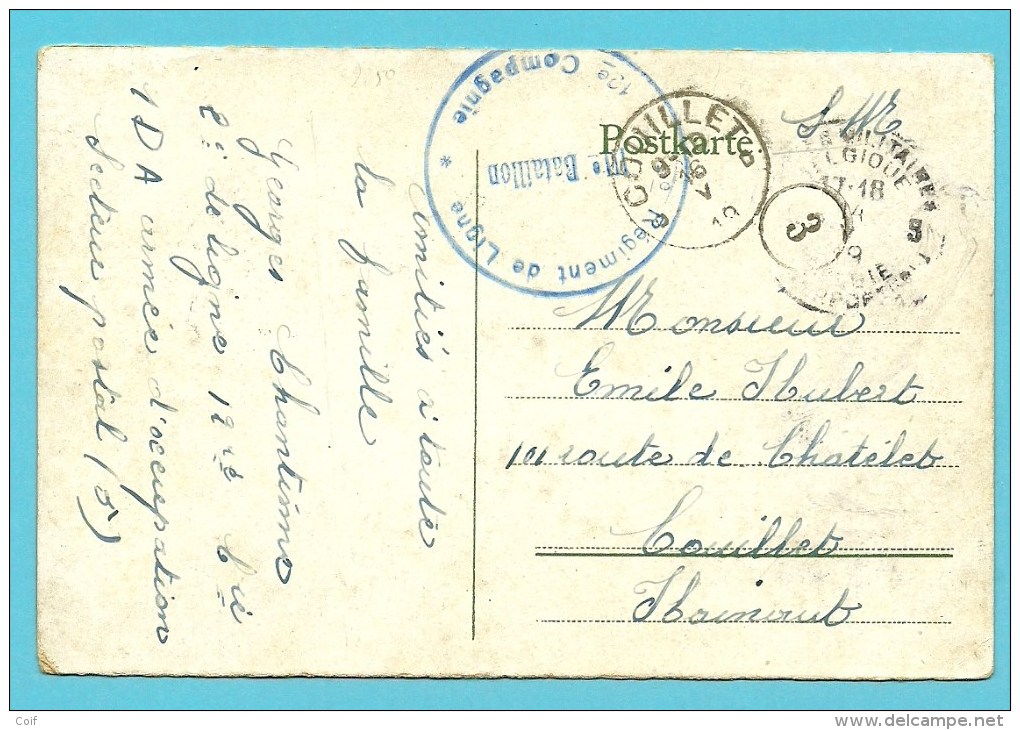 Postkarte
S.M.
12e Compagnie
IIIe Bataillon
Régiment de Ligne *
COUILLET
MILITAIRE
BELGIQUE
17-18
3
Monsieur
Emile Hubert
101 route de Chatelet
Couillet
Hainaut
Amitiés à toute
la famille
Georges Chantinne
2e de ligne 12e Cie
1 DA armée d'occupation
Secteur postal (5)
2.50
Coif
www.delcampe.net